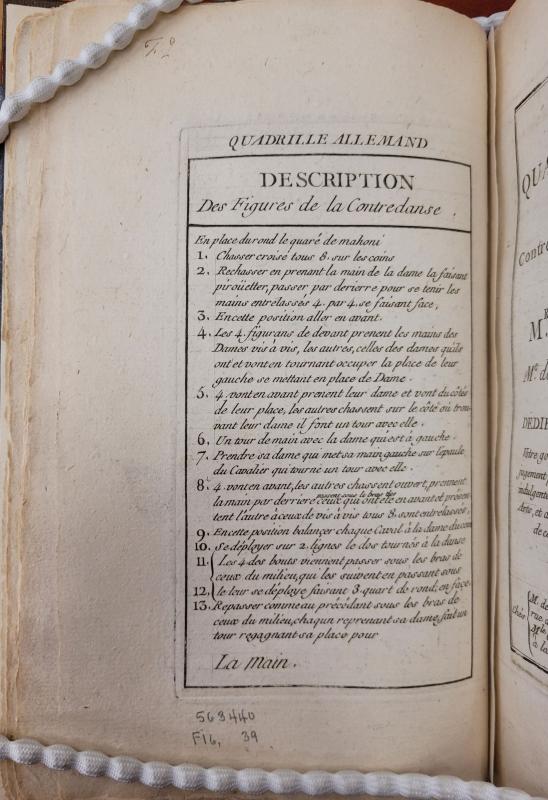 QUADRILLE ALLEMAND
DESCRIPTION
Des Figures de la Contredanse.
En place du rond le quaré de mahoni
1. Chasser croisé tous 8. sur les coins
2. Rechasser en prenant la main de la dame la faisant
piroüetter, passer par derierre pour se tenir les
mains entrélassés 4. par 4. se faisant face,
3. En cette position aller en avant.
4. Les 4. figurans de devant prenent les mains des
Dames vis à vis, les autres, celles des dames quils
ont et vont en tournant occuper la place de leur
gauche se mettant en place de Dame.
5. 4. vont en avant prenent leur dame et vont du côtés
de leur place, les autres chassent sur le côté ou trou-
vant leur dame il font un tour avec elle.
6. Un tour de main avec la dame qui est à gauche.
7. Prendre sa dame qui met sa main gauche sur l'epaule
du Cavalier qui tourne un tour avec elle.
8. 4. vont en avant, les autres chassent ouvert, prennent
passent sous le bras
la main par derriere ceux qui ont été en avant et présen-
tent l'autre à ceux de vis à vis tous 8. sont entrelassés.
9. En cette position balançer chaque Caval. à la dame du
10. Se déployer sur 2. lignes le dos tournés à la danse
11. Les 4 des bouts viennent passer sous les bras de
ceux du milieu, qui les suivent en passant sous
12. le leur se deploye faisant 3. quart de rond, en face,
13. Repasser comme au précédant sous les bras de
ceux du milieu, chaqun reprenant sa dame, fait un
tour regagnant sa place pour
La main.
563440
FIG, 39
QUA
Contre
M.
DEDIE